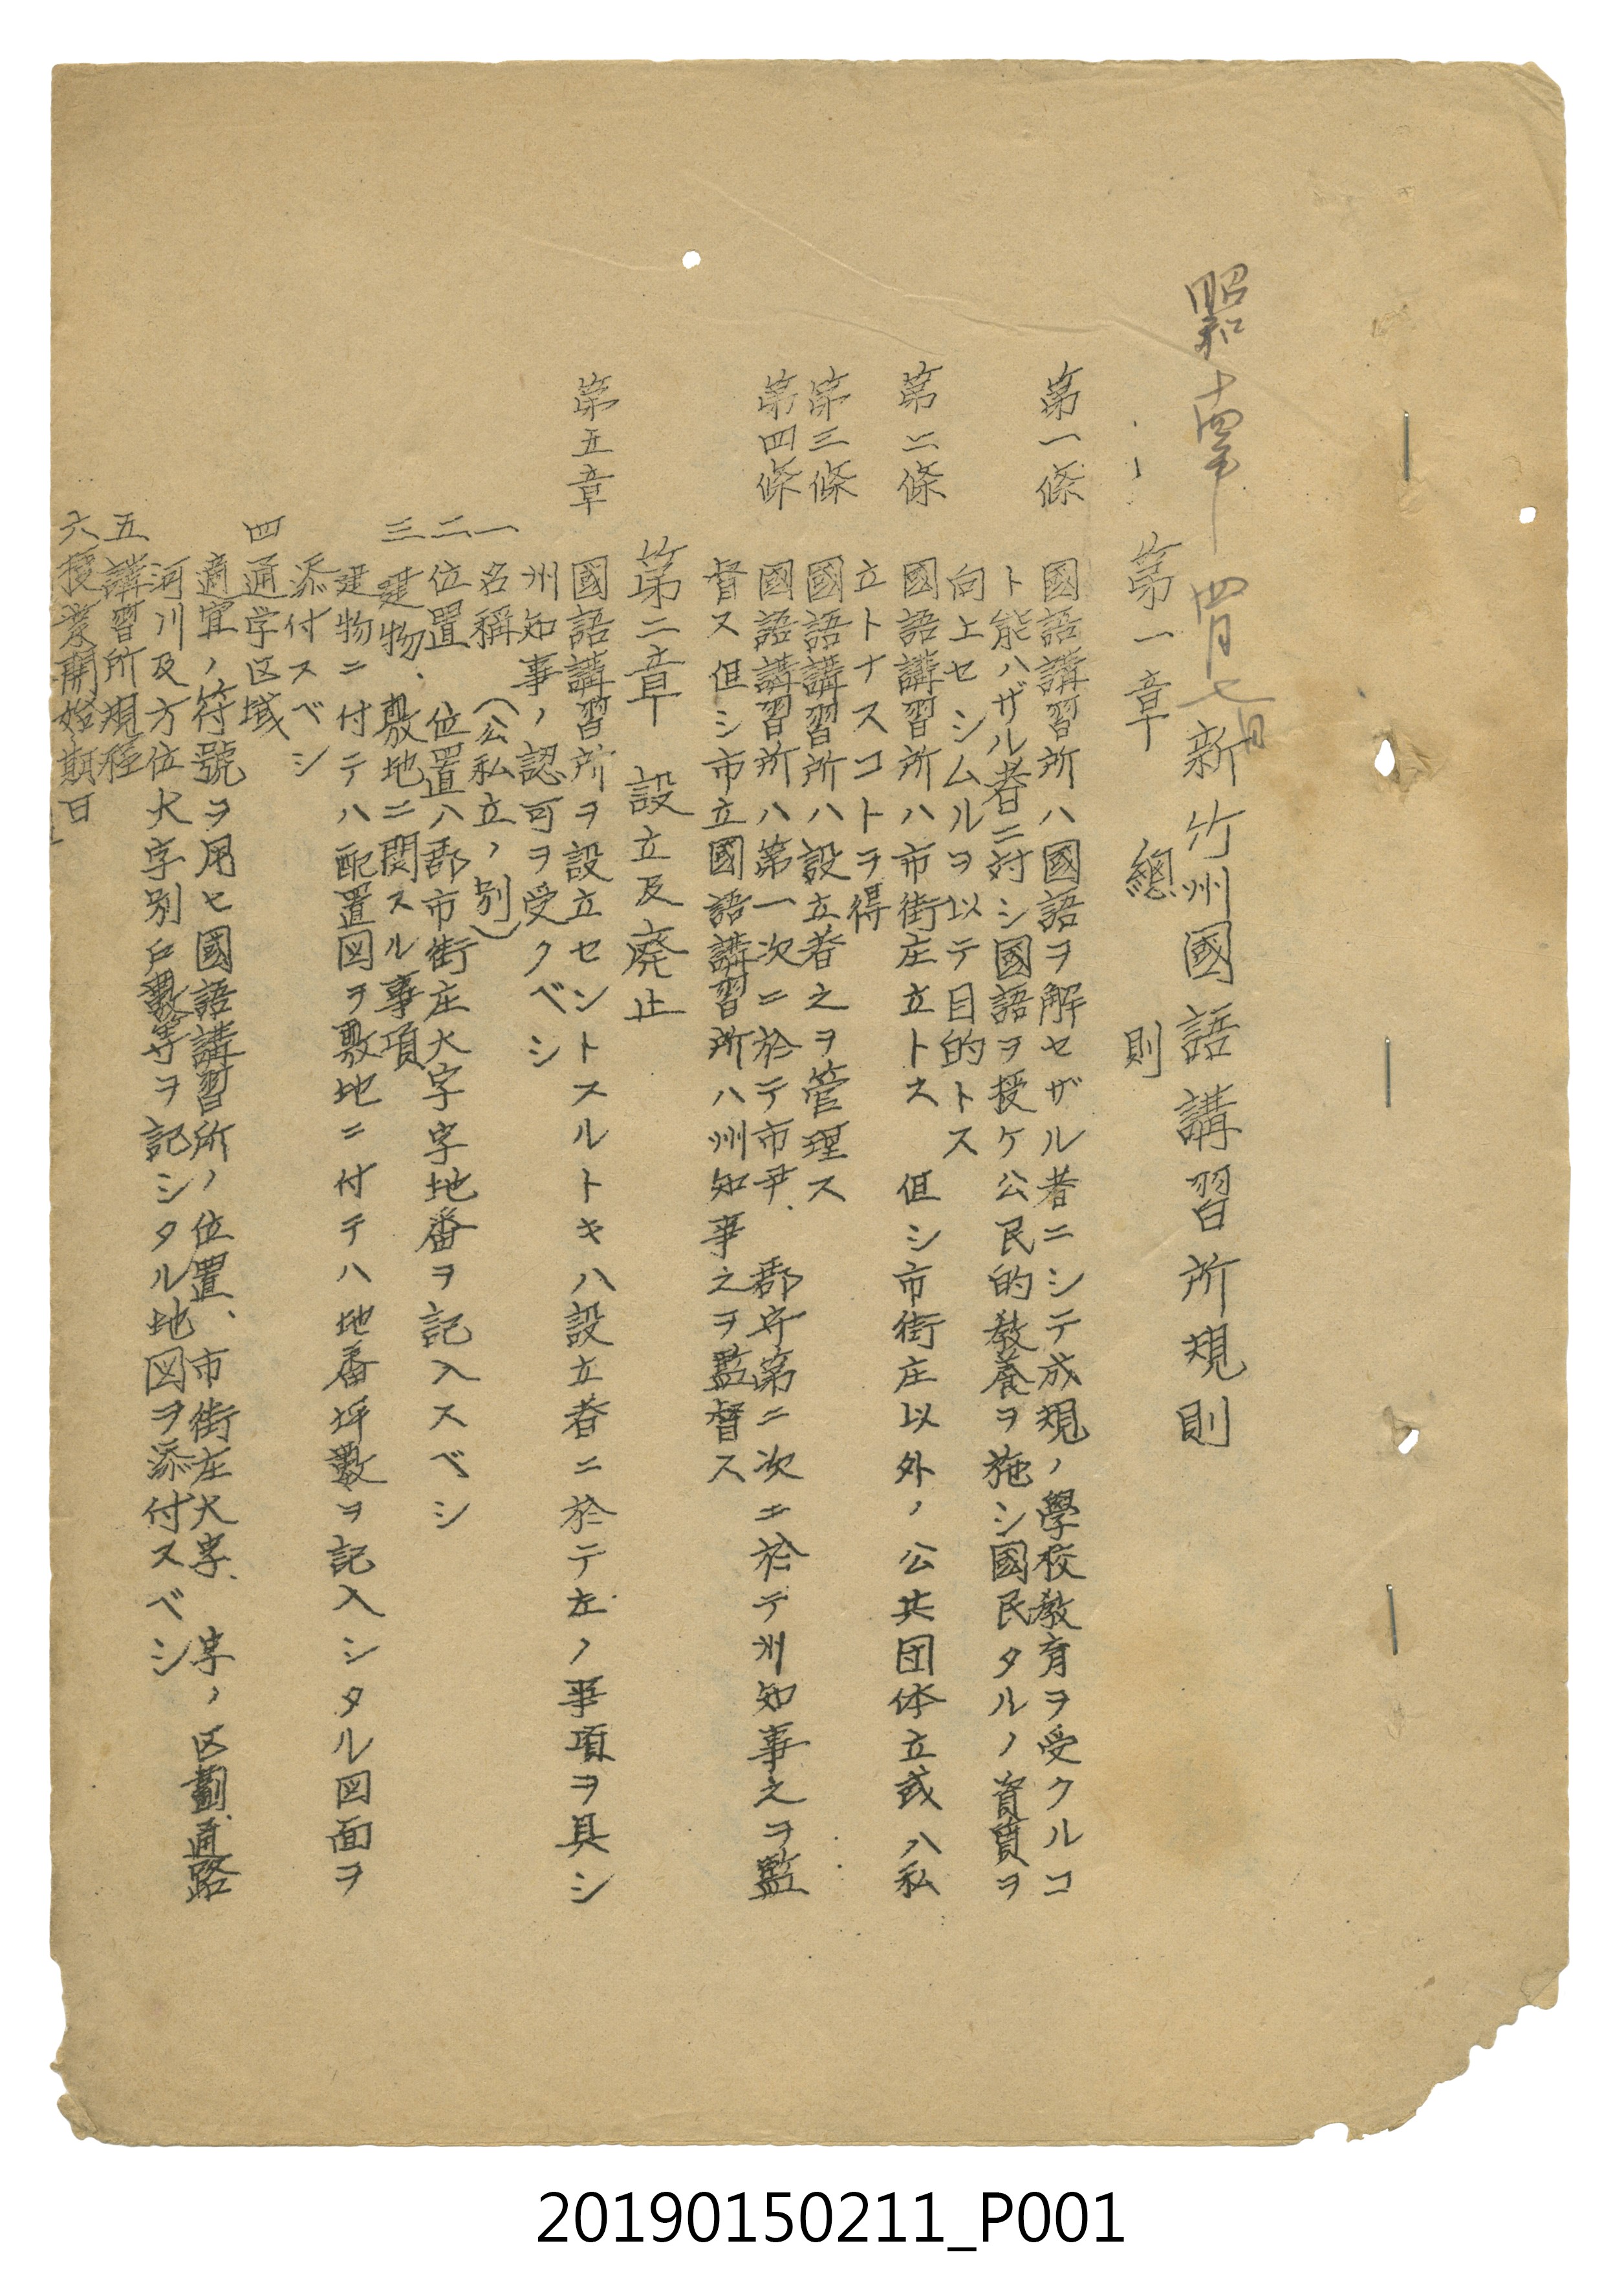 昭和十四年四月七日
新竹州國語講習所規則
第一章 總則
第一條 國語講習所ハ國語ヲ解セザル者ニシテ成規ノ學校教育ヲ受クルコ
ト能ハザル者ニ対シ國語ヲ授ケ公民的教養ヲ施シ國民タルノ資質ヲ
向上セシムルヲ以テ目的トス
第二條 國語講習所ハ市街庄立トス 但シ市街庄以外ノ公共団体立或ハ私
立トナスコトヲ得
第三條 國語講習所ハ設立者之ヲ管理ス
第四條 國語講習所ハ第一次ニ於テ市尹、郡守第二次ニ於テ州知事之ヲ監
督ス但シ市立國語講習所ハ州知事之ヲ監督ス
第二章 設立及廃止
第五章 國語講習所ヲ設立セントスルトキハ設立者ニ於テ左ノ事項ヲ具シ
州知事ノ認可ヲ受クベシ
一 名稱(公私立ノ別)
二 位置、位置ハ郡市街庄大字字地番ヲ記入スベシ
三 建物、敷地ニ関スル事項
建物ニ付テハ配置図ヲ敷地ニ付テハ地番坪數ヲ記入シタル図面ヲ
添付スベシ
四 通学区域
適宜ノ符號ヲ用ヒ國語講習所ノ位置、市街庄大字、字ノ区劃、通路
河川及方位大字別戸數等ヲ記シタル地図ヲ添付スベシ
五 講習所規程
六 授業開始期日
20190150211_P001